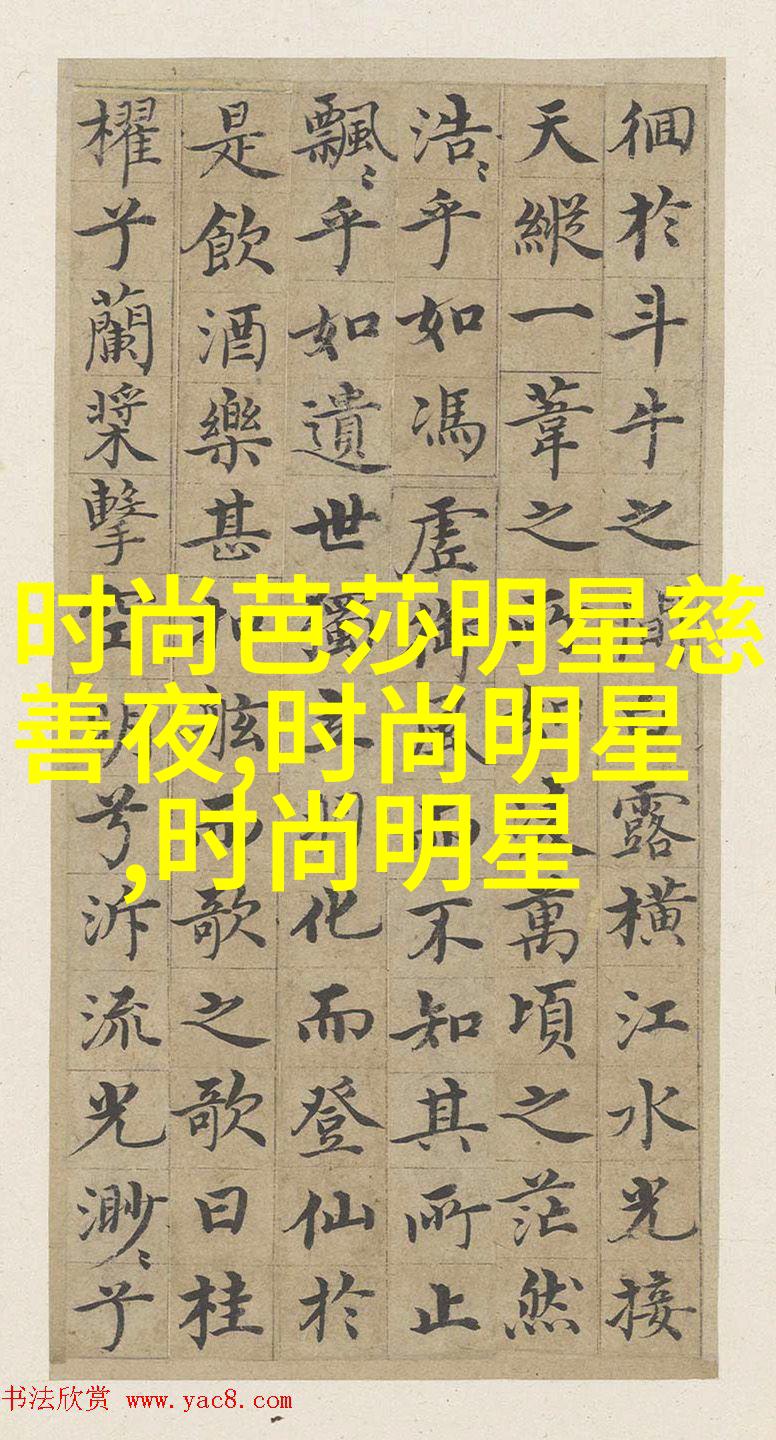 徊於斗牛之露橫江水光接
天縱一葦之萬頃之茫然
浩〻乎如馮虛御風而不知其所止
飄〻乎如遺世獨立羽化而登仙於
是飲酒樂甚扣舷而歌之歌曰桂
櫂兮蘭槳擊空明兮泝流光渺〻兮
时尚芭莎明星慈
善夜,时尚明星
,时尚明星
书法欣赏 www.yac8.com